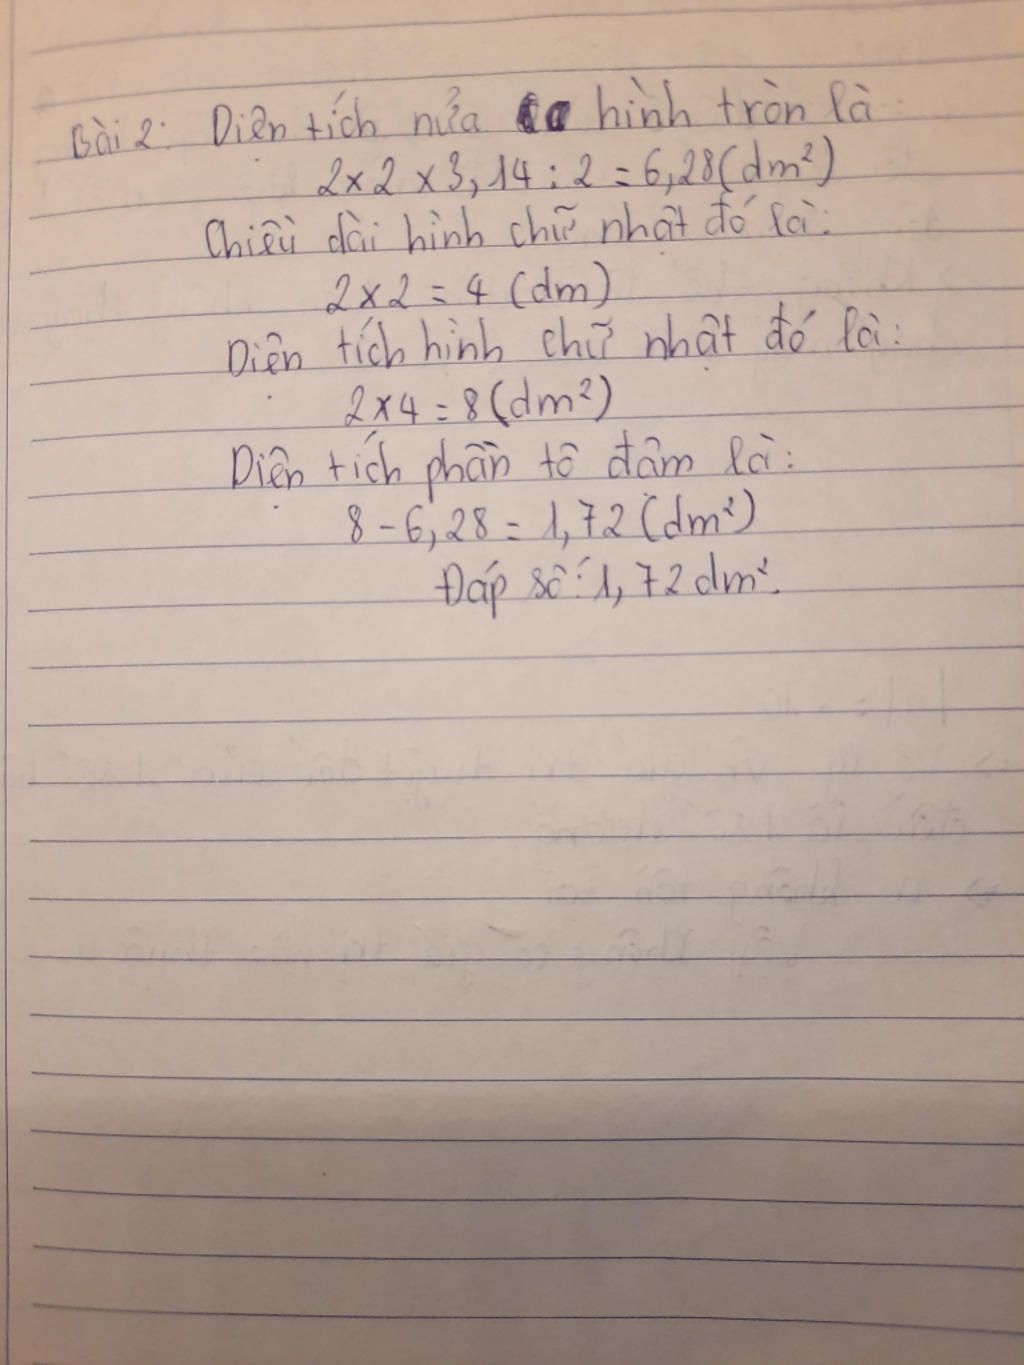 Bài 2: Diện tích nửa hình tròn là:
2 x 2 x 3,14 : 2 = 6,28 (dm²)
Chiều dài hình chữ nhật đó là:
2 x 2 = 4 (dm)
Diện tích hình chữ nhật đó là:
2 x 4 = 8 (dm²)
Diện tích phần tô đậm là:
8 - 6,28 = 1,72 (dm²)
Đáp số: 1,72 dm².